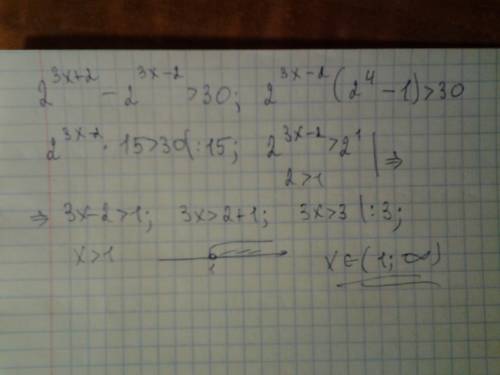 2^{3x+2} - 2^{3x-2} > 30; 2^{3x-2} (2^4 - 1) > 30
2^{3x-2} · 15 > 30 | : 15; 2^{3x-2} > 2^1 | ⇒
2 > 1
⇒ 3x-2 > 1; 3x > 2+1; 3x > 3 | : 3;
x > 1 1 x ∈ (1; ∞)